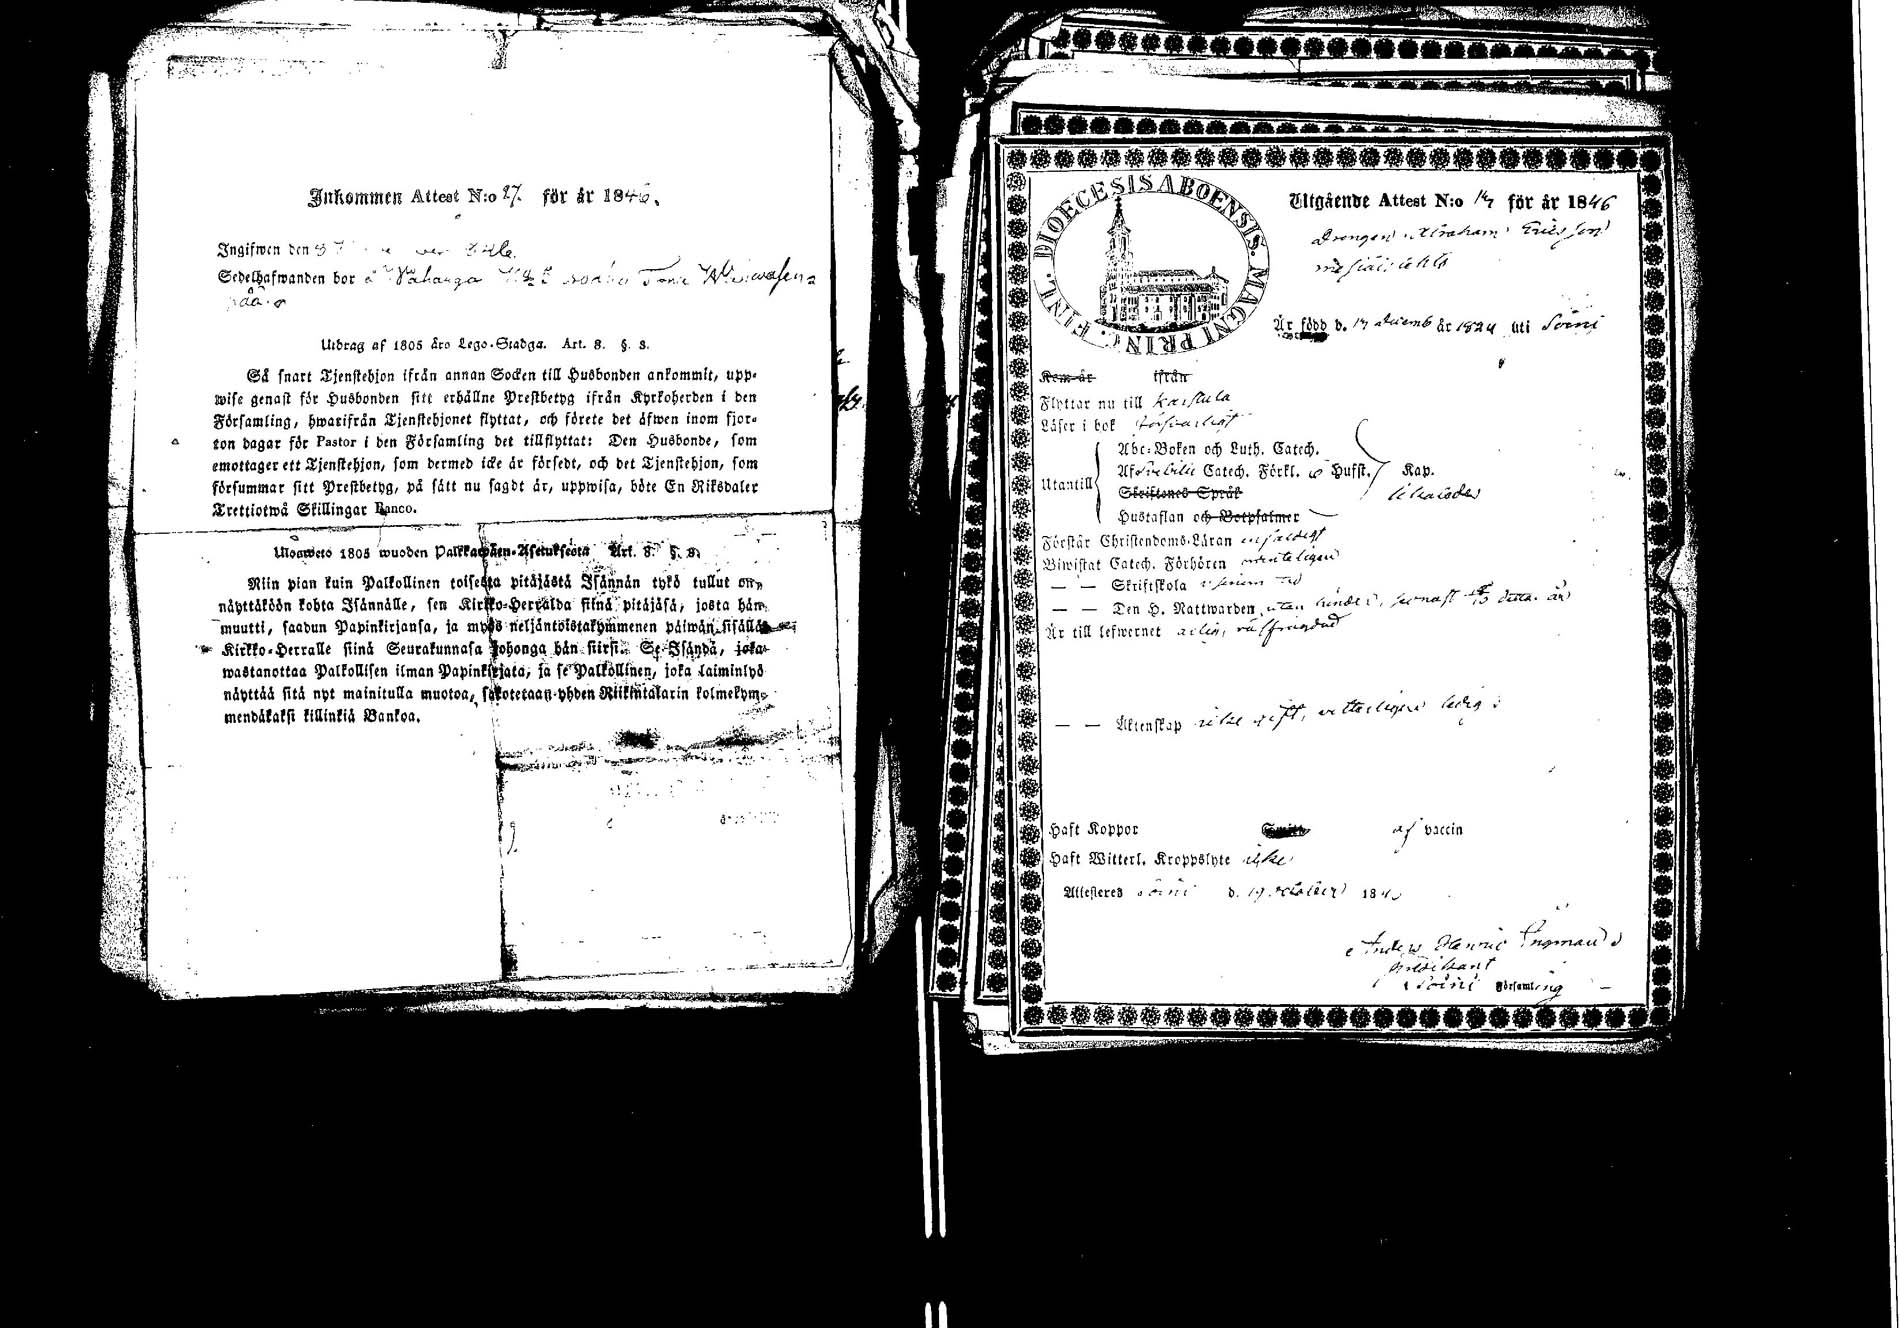 Inkommen Attest N:o 27. för år 1846.
Ingifwen den
Sedelhafwanden bor å
Utdrag af 1805 års Lego-Stadga. Art. 8. §. 8.
Så snart Tjenstehjon ifrån annan Socken till Husbonden ankommit, upp-
wise genast för Husbonden sitt erhållne Prestbetyg ifrån Kyrkoherden i den
Församling, hwarifrån Tjenstehjonet flyttat, och förete det äfwen inom fjor-
ton dagar för Pastor i den Församling det tillflyttat: Den Husbonde, som
emottager ett Tjenstehjon, som dermed icke är försedt, och det Tjenstehjon, som
försummar sitt Prestbetyg, på sätt nu sagdt är, uppwisa, böte En Riksdaler
Trettiotwå Skillingar Banco.
Ulosweto 1805 wuoden Palkkawäen-Asetuksesta Art. 8. §. 8.
Niin pian kuin Palkollinen toisesta pitäjästä Isännän tykö tullut on,
näyttäköön kohta Isännälle, sen Kirkko-Herralda siinä pitäjäsä, josta hän
muutti, saadun Papinkirjansa, ja myös neljäntoistakymmenen päiwän sisällä
Kirkko-Herralle siinä Seurakunnasa johonga hän siirsi. Se Isändä, joka
wastanottaa Palkollisen ilman Papinkirjata, ja se Palkollinen, joka laiminlyö
näyttää sitä nyt mainitulla muotoa, sakotetaan yhden Riikintalarin kolmekym-
mendäkaksi killinkiä Bankoa.
DIOECESIS ABOENSIS. MAGNI PRINC. FINL.
Utgående Attest N:o 17 för år 1846
Drengen Abraham Ericsson
Är född d. 17 Decemb år 1824 uti Soini
Kom år ifrån
Flyttar nu till Karstula
Läser i bok försvarligt
Utantill
Abc-Boken och Luth. Catech.
Af Svebilii Catech. Förkl. o Hufst. Kap.
Skriftenes Språk
Hustaflan och Botpsalmer
Förstår Christendoms-Läran enfaldigt
Biwistat Catech. Förhören wenteligen
— — Skriftskola
— — Den H. Nattwarden utan hinder, senast detta år
Är till lefwernet ärlig, välfrejdad
— — Äktenskap icke gift, vetterligen ledig
Haft Koppor af vaccin
Haft Witterl. Kroppslyte icke
Attesteras Soini d. 19 October 184
Anders Henric Ingman
Predikant
i Soini Församling